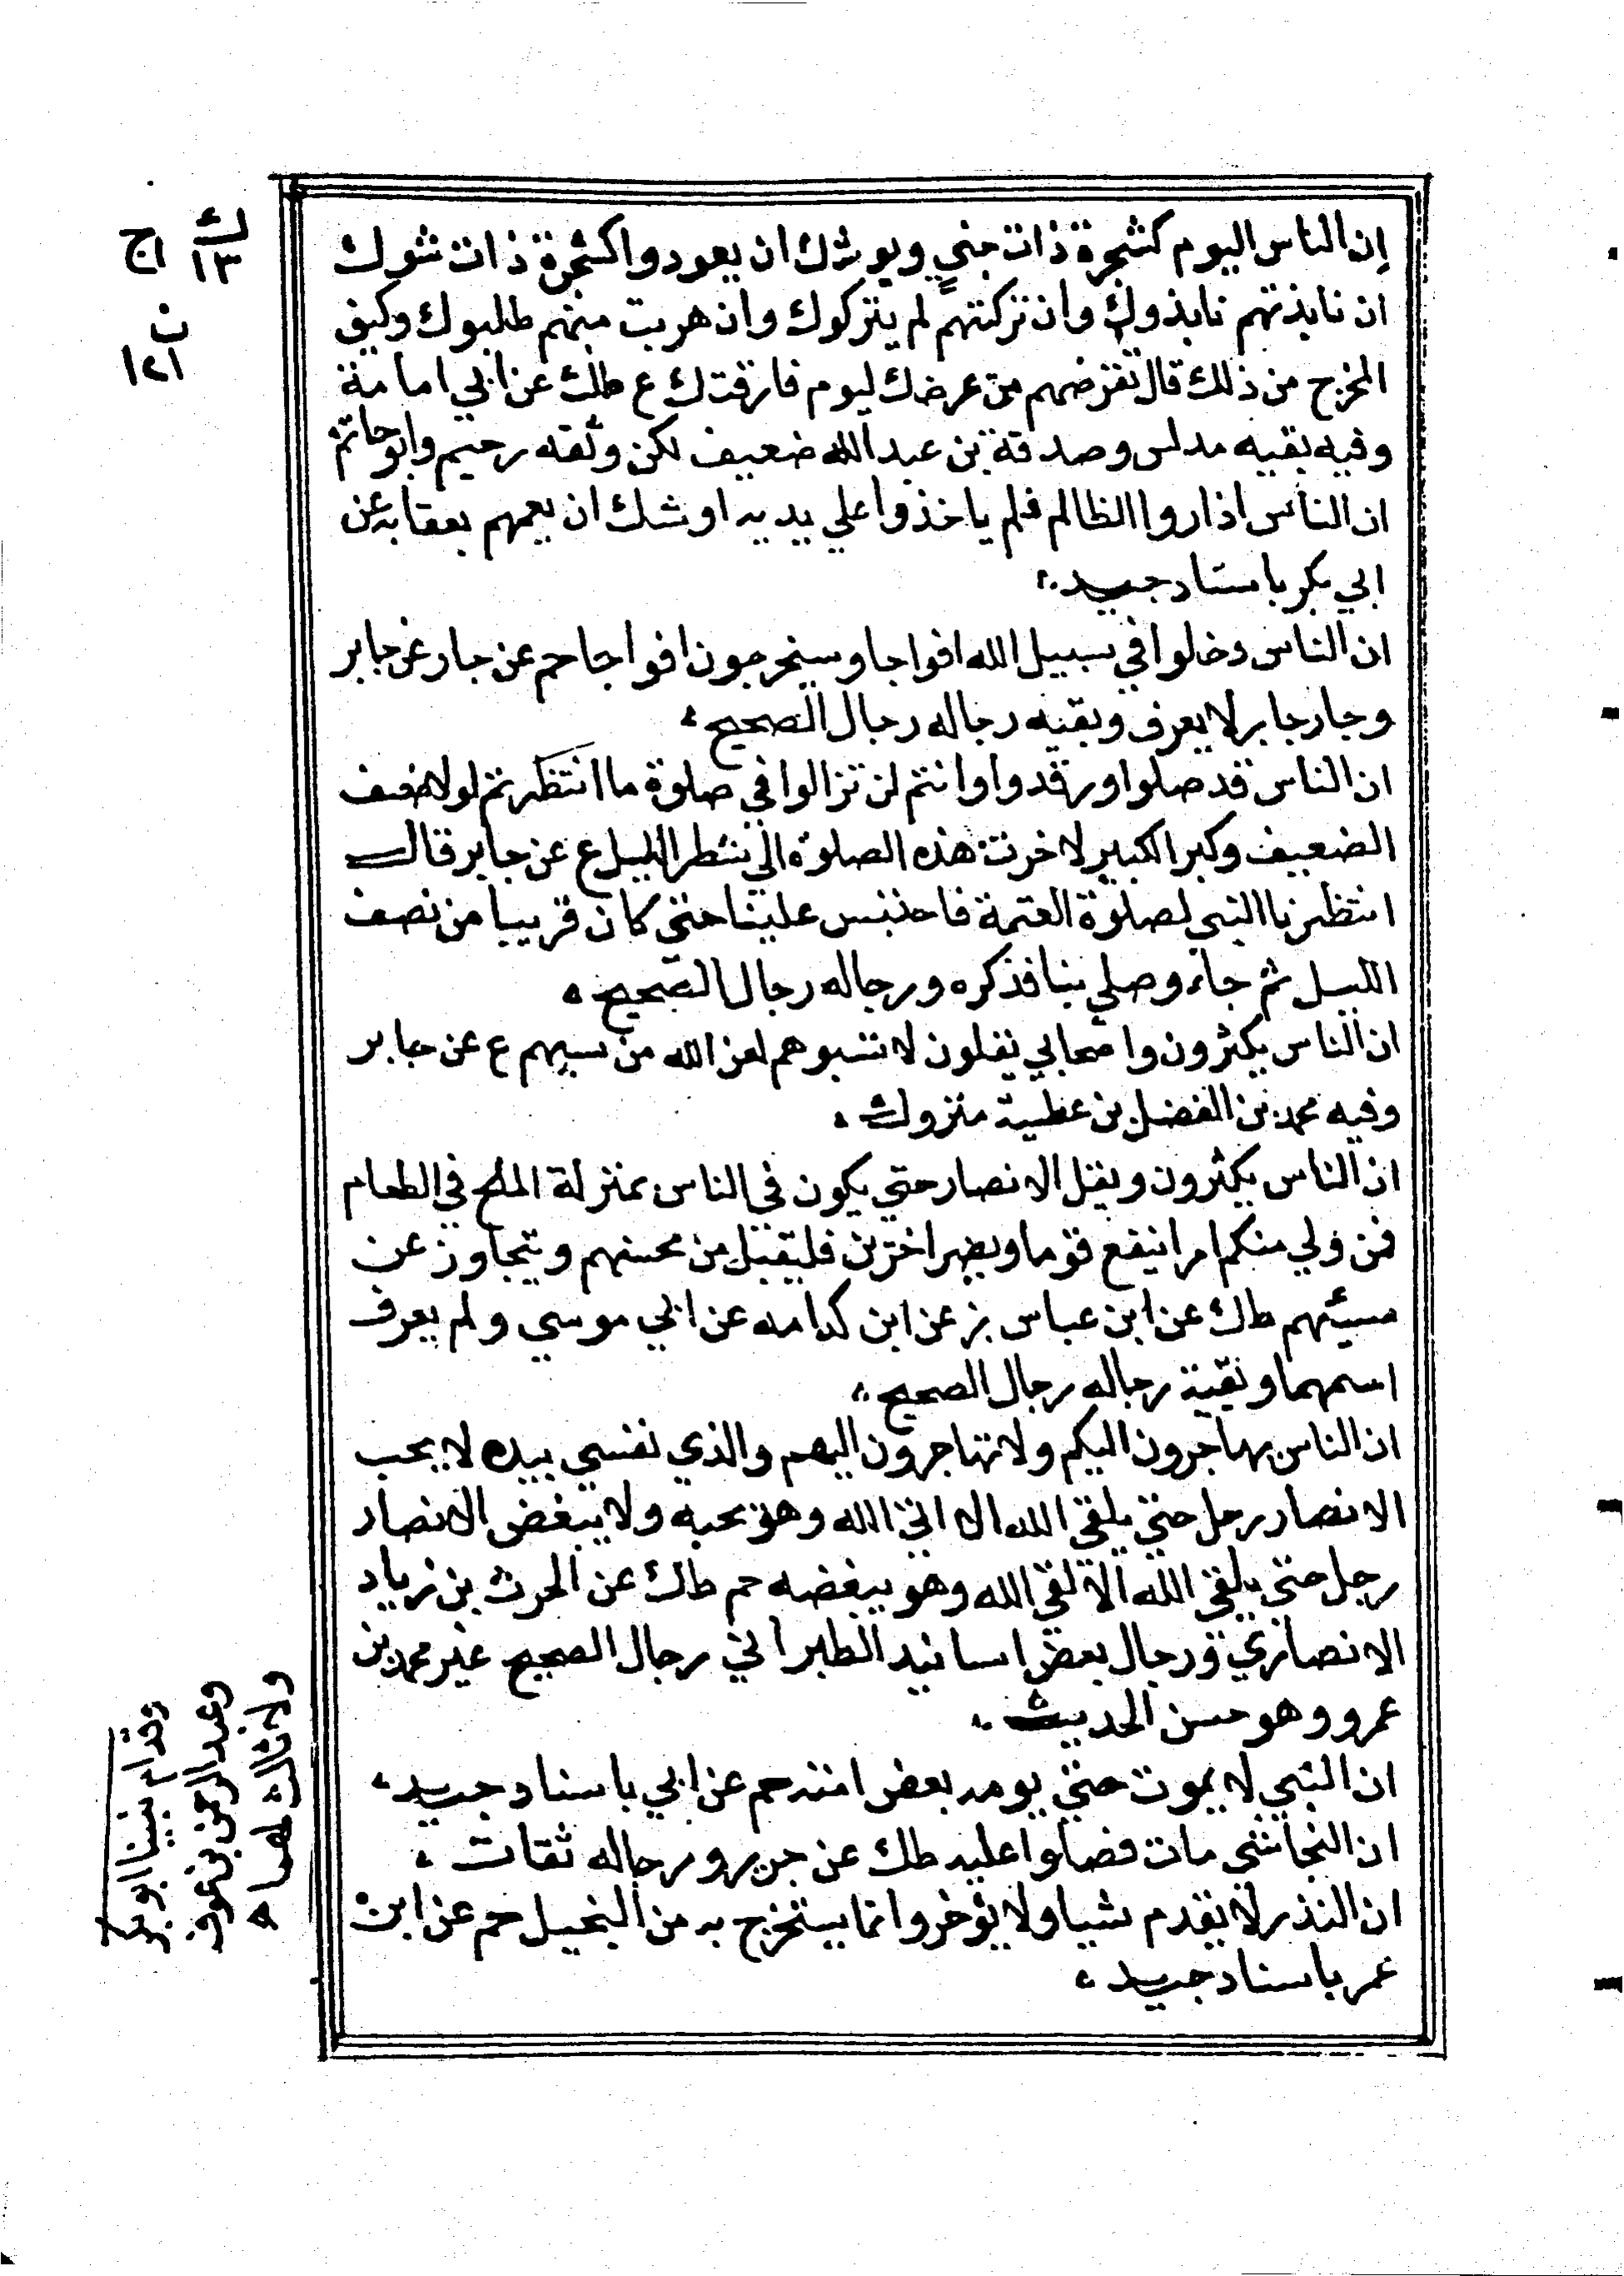 إن الناس اليوم كشجرة ذات جني ويوشك ان يعودوا كشجرة ذات شوك
ان نابذتهم نابذوك وان تركتهم لم يتركوك وان هربت منهم طلبوك وكيف
المخرج من ذلك قال تقرضهم من عرضك ليوم فاقتك ع طك عن ابي امامة
وفيه بقيه مدلس وصدقة بن عبدالله ضعيف لكن وثقه رحيم وابوحاتم
ان الناس اذا راوا الظالم فلم ياخذوا علي يديه اوشك ان يعمهم بعقابه عن
ابي بكر باسناد جيد
ان الناس دخلوا في سبيل الله افواجا وسيخرجون افواجا حم عن جار عن جابر
وجار جابر لا يعرف وبقيه رجاله رجال الصحيح
ان الناس قد صلوا ورقدوا وانتم لن تزالوا في صلوة ما انتظرتم لولا ضعف
الضعيف وكبر الكبير لاخرت هذه الصلوة الي شطر الليل ع عن جابر قال
انتظرنا النبي لصلوة العتمة فاحتبس علينا حتي كان قريبا من نصف
الليل ثم جاء وصلي بنا فذكره ورجاله رجال الصحيح
ان الناس يكثرون واصحابي يقلون لا تسبوهم لعن الله من سبهم ع عن جابر
وفيه محمد بن الفضل بن عطية متروك
ان الناس يكثرون ويقل الانصار حتي يكون في الناس بمنزلة الملح في الطعام
فمن ولي منكم امرا ينفع قوما ويضر اخرين فليقبل من محسنهم ويتجاوز عن
مسيئهم طك عن ابن عباس بز عن ابن كدامه عن ابي موسي ولم يعرف
اسمهما وبقية رجاله رجال الصحيح
ان الناس يهاجرون اليكم ولا تهاجرون اليهم والذي نفسي بيده لا يحب
الانصار رجل حتي يلقي الله الا لقي الله وهو يحبه ولا يبغض الانصار
رجل حتي يلقي الله الا لقي الله وهو يبغضه حم طك عن الحرث بن زياد
الانصاري ورجال بعض اسانيد الطبراني رجال الصحيح غير محمد بن
عمرو وهو حسن الحديث
ان النبي لا يموت حتي يومه بعض امته حم عن ابي باسناد جيد
ان النجاشي مات فصلوا عليه طك عن جرير ورجاله ثقات
ان النذر لا يقدم شيا ولا يؤخر وانما يستخرج به من البخيل حم عن ابن
عمر باسناد جيد
ك
١٣
اج
ن
١٢١